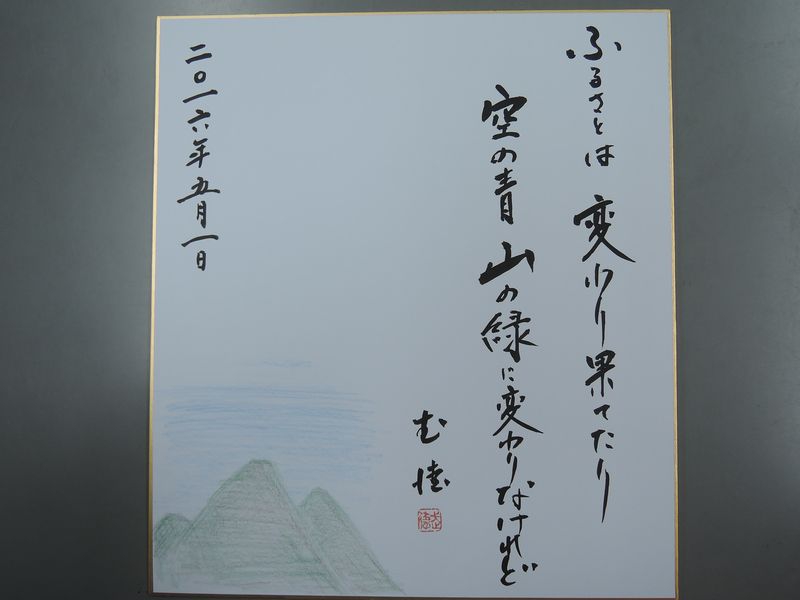 ふるさとは 変わり果てたり
空の青 山の緑に変わりなけれど
武徳
二〇一六年五月一日